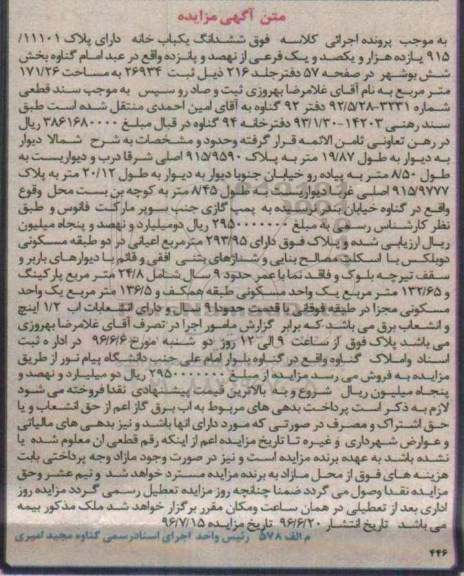 متن آگهی مزایده
به موجب پرونده اجرائی کلاسه فوق ششدانگ یکباب خانه دارای پلاک ۱۱۱۰۱/
۹۱۵ یازده هزار و یکصد و یک فرعی از نهصد و پانزده واقع در عبد امام گناوه بخش
شش بوشهر در صفحه ۵۷ دفتر جلد ۲۱۶ ذیل ثبت ۲۶۹۳۴ به مساحت ۱۷۱/۲۶
متر مربع به نام آقای غلامرضا بهروزی ثبت و صادر و سپس به موجب سند قطعی
شماره ۳۳۳۱-۹۲/۵/۲۸ دفتر ۹۲ گناوه به آقای امین احمدی منتقل شده است طبق
سند رهنی ۱۴۲۰۳-۹۳/۱/۳۰ دفترخانه ۹۴ گناوه در قبال مبلغ ۳۸۶۱۶۸۰۰۰۰ ریال
در رهن تعاونی ثامن الائمه قرار گرفته وحدود و مشخصات به شرح شمالا دیوار
به دیوار به طول ۱۹/۸۷ متر به پلاک ۹۱۵/۹۵۹۰ اصلی شرقا درب و دیواریست به
طول ۸/۵۰ متر به پیاده رو خیابان جنوبا دیوار به دیوار به طول ۲۰/۱۲ متر به پلاک
۹۱۵/۹۷۷۷ اصلی غربا دیواریست به طول ۸/۴۵ متر به کوچه بن بست محل وقوع
واقع در گناوه خیابان بندر نرسیده به پمپ گازی جنب سوپر مارکت فانوس و طبق
نظر کارشناس رسمی به مبلغ ۲۹۵۰۰۰۰۰۰۰ ریال دومیلیارد و نهصد و پنجاه میلیون
ریال ارزیابی شده و پلاک فوق دارای ۲۹۳/۹۵ مترمربع اعیانی در دو طبقه مسکونی
دوبلکس با اسکلت مصالح بنایی و شناژهای بتنی افقی و قائم با دیوارهای باربر و
سقف تیرچه بلوک و فاقد نما با عمر حدود ۹ سال شامل ۲۴/۸ متر مربع پارکینگ
و ۱۳۲/۶۵ متر مربع یک واحد مسکونی طبقه همکف و ۱۳۶/۵ متر مربع یک واحد
مسکونی مجزا در طبقه فوقانی با قدمت حدودا ۹ سال و دارای انشعابات اب ۱/۲ اینچ
و انشعاب برق می باشد که برابر گزارش مامور اجرا در تصرف آقای غلامرضا بهروزی
می باشد پلاک فوق از ساعت ۹ الی ۱۲ روز دو شنبه مورخ ۹۶/۶/۶ در اداره ثبت
اسناد واملاک گناوه واقع در گناوه بلوار امام علی جنب دانشگاه پیام نور از طریق
مزایده به فروش می رسد مزایده از مبلغ ۲۹۵۰۰۰۰۰۰۰ ریال دو میلیارد و نهصد و
پنجاه میلیون ریال شروع و به بالاترین قیمت پیشنهادی نقدا فروخته می شود
لازم به ذکر است پرداخت بدهی های مربوط به اب برق گاز اعم از حق انشعاب و یا
حق اشتراک و مصرف در صورتی که مورد دارای انها باشد و نیز بدهی های مالیاتی
و عوارض شهرداری و غیره تا تاریخ مزایده اعم از اینکه رقم قطعی ان معلوم شده یا
نشده باشد به عهده برنده مزایده است و نیز در صورت وجود مازاد وجه پرداختی بابت
هزینه های فوق از محل مازاد به برنده مزایده مسترد خواهد شد و نیم عشر و حق
مزایده نقدا وصول می گردد ضمنا چنانچه روز مزایده تعطیل رسمی گردد مزایده روز
اداری بعد از تعطیلی در همان ساعت ومکان مقرر برگزار خواهد شد ملک مذکور بیمه
می باشد تاریخ انتشار ۹۶/۶/۲۰ تاریخ مزایده ۹۶/۷/۱۵
م الف ۵۷۸ رئیس واحد اجرای اسناد رسمی گناوه مجید امیری
۴۴۶